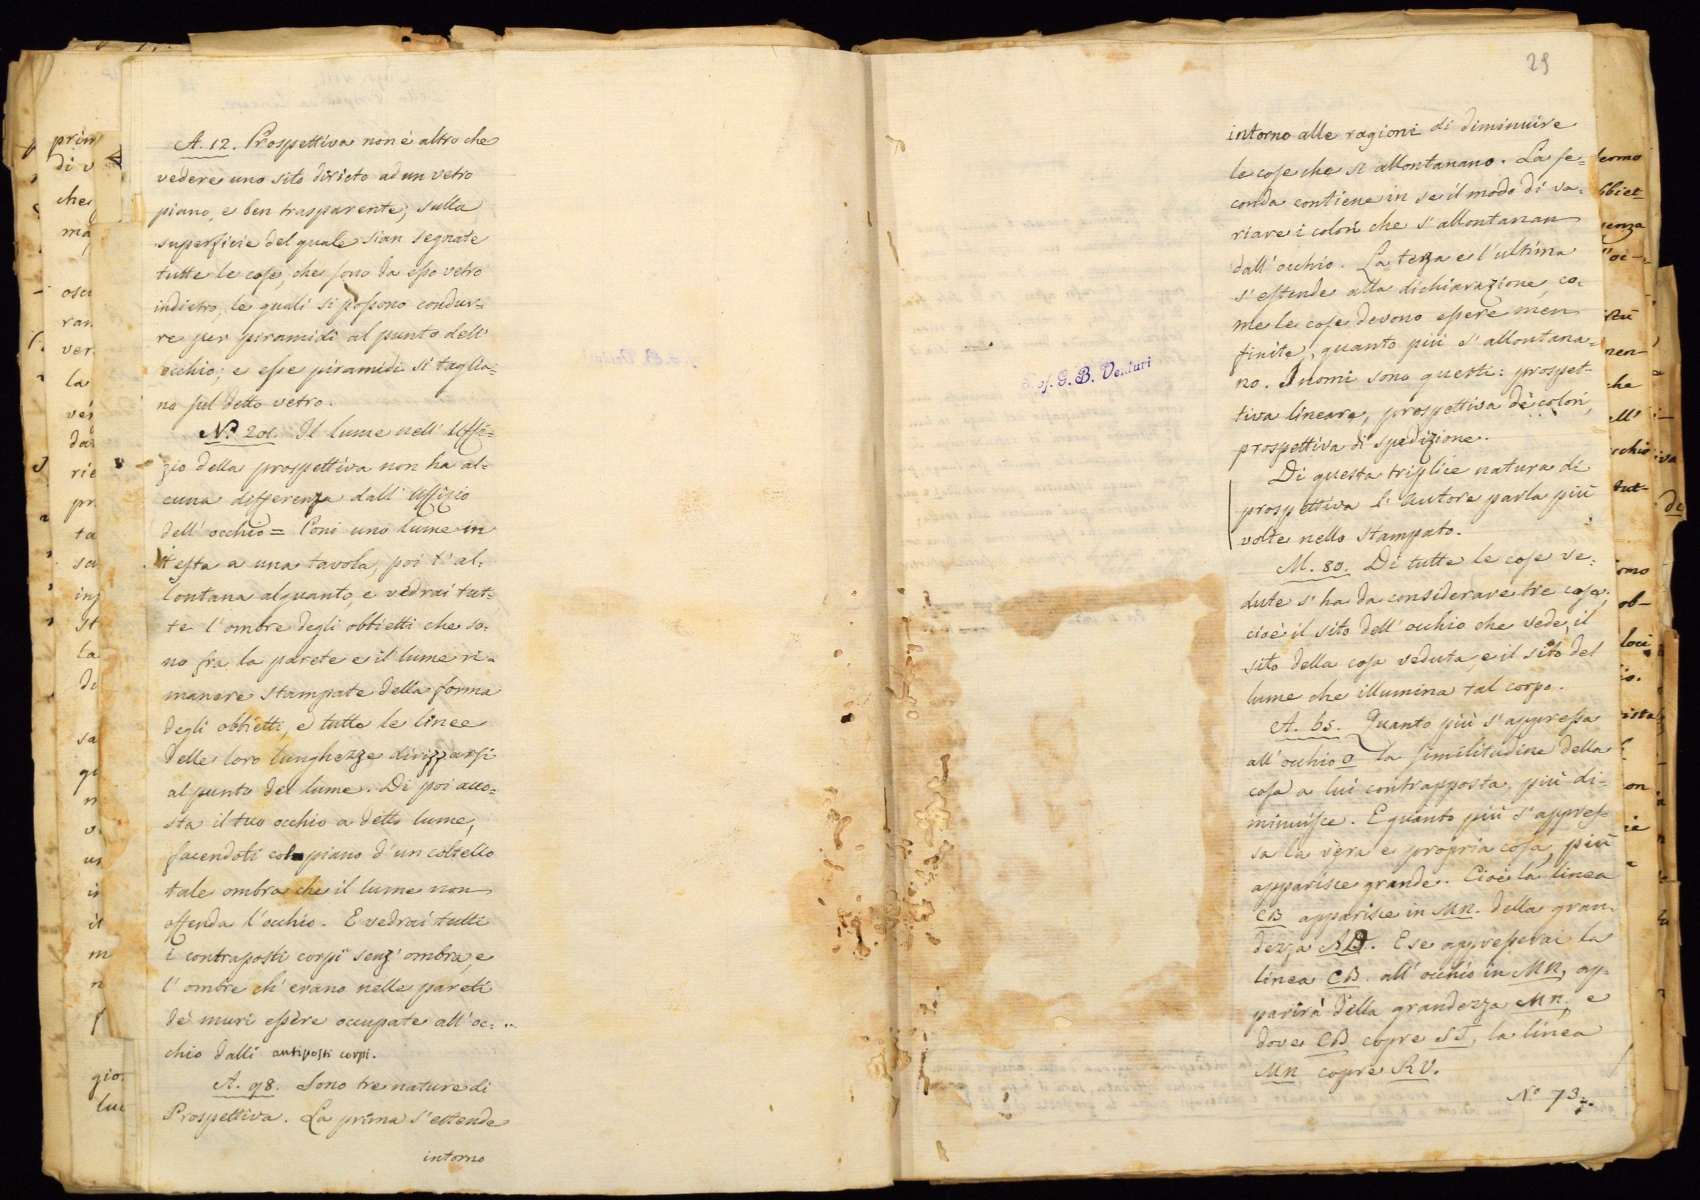 A. 12. Prospettiva non è altro che
vedere uno sito dirieto ad un vetro
piano, e ben trasparente; sulla
superficie del quale sian segnate
tutte le cose, che sono da esso vetro
indietro, le quali si possono condur=
re per piramidi al punto dell'
occhio; e esse piramidi si taglia=
no sul detto vetro.
N.º 201. Il lume nell' Uffi=
zio della prospettiva non ha al=
cuna differenza dall' Uffizio
dell' occhio = Poni uno lume in
testa a una tavola, poi t' al=
lontana alquanto, e vedrai tut=
te l'ombre degli obbietti che so=
no fra la parete e il lume ri=
manere stampate della forma
degli obbietti, e tutte le linee
delle loro lunghezze dirizzarsi
al punto del lume. Di poi acco=
sta il tuo occhio a detto lume,
facendoti col piano d'un coltello
tale ombra che il lume non
offenda l'occhio. E vedrai tutti
i contraposti corpi senz' ombra, e
l'ombre ch' erano nelle pareti
de' muri essere occupate all' oc=
chio dalli antiposti corpi.
A. 98. Sono tre nature di
Prospettiva. La prima s'estende
intorno
29
intorno alle ragioni di diminuire
le cose che si allontanano. La se=
conda contiene in se il modo di va=
riare i colori che s' allontanan
dall' occhio. La terza e l'ultima
s' estende alla dichiarazione, co=
me le cose devono essere men
finite, quanto più s' allontana=
no. I nomi sono questi: prospet=
tiva lineare, prospettiva de' colori,
prospettiva di spedizione.
Di questa triplice natura di
prospettiva l' Autore parla più
volte nello stampato.
M. 80. Di tutte le cose ve=
dute s' ha da considerare tre cose;
cioè il sito dell' occhio che vede, il
sito della cosa veduta, e il sito del
lume che illumina tal corpo.
A. 65. Quanto più s' appressa
all' occhio o la similitudine della
cosa a lui contrapposta, più di=
minuisce. E quanto più s' appres=
sa la vera e propria cosa, più
apparisce grande. Cioè la linea
CB apparisce in MN. della gran=
dezza AD. E se appresserai la
linea CB. all' occhio in MN, ap=
parirà della grandezza MN, e
dove CB copre ST, la linea
MN copre RV.
N.º 73.
Prof. G. B. Venturi